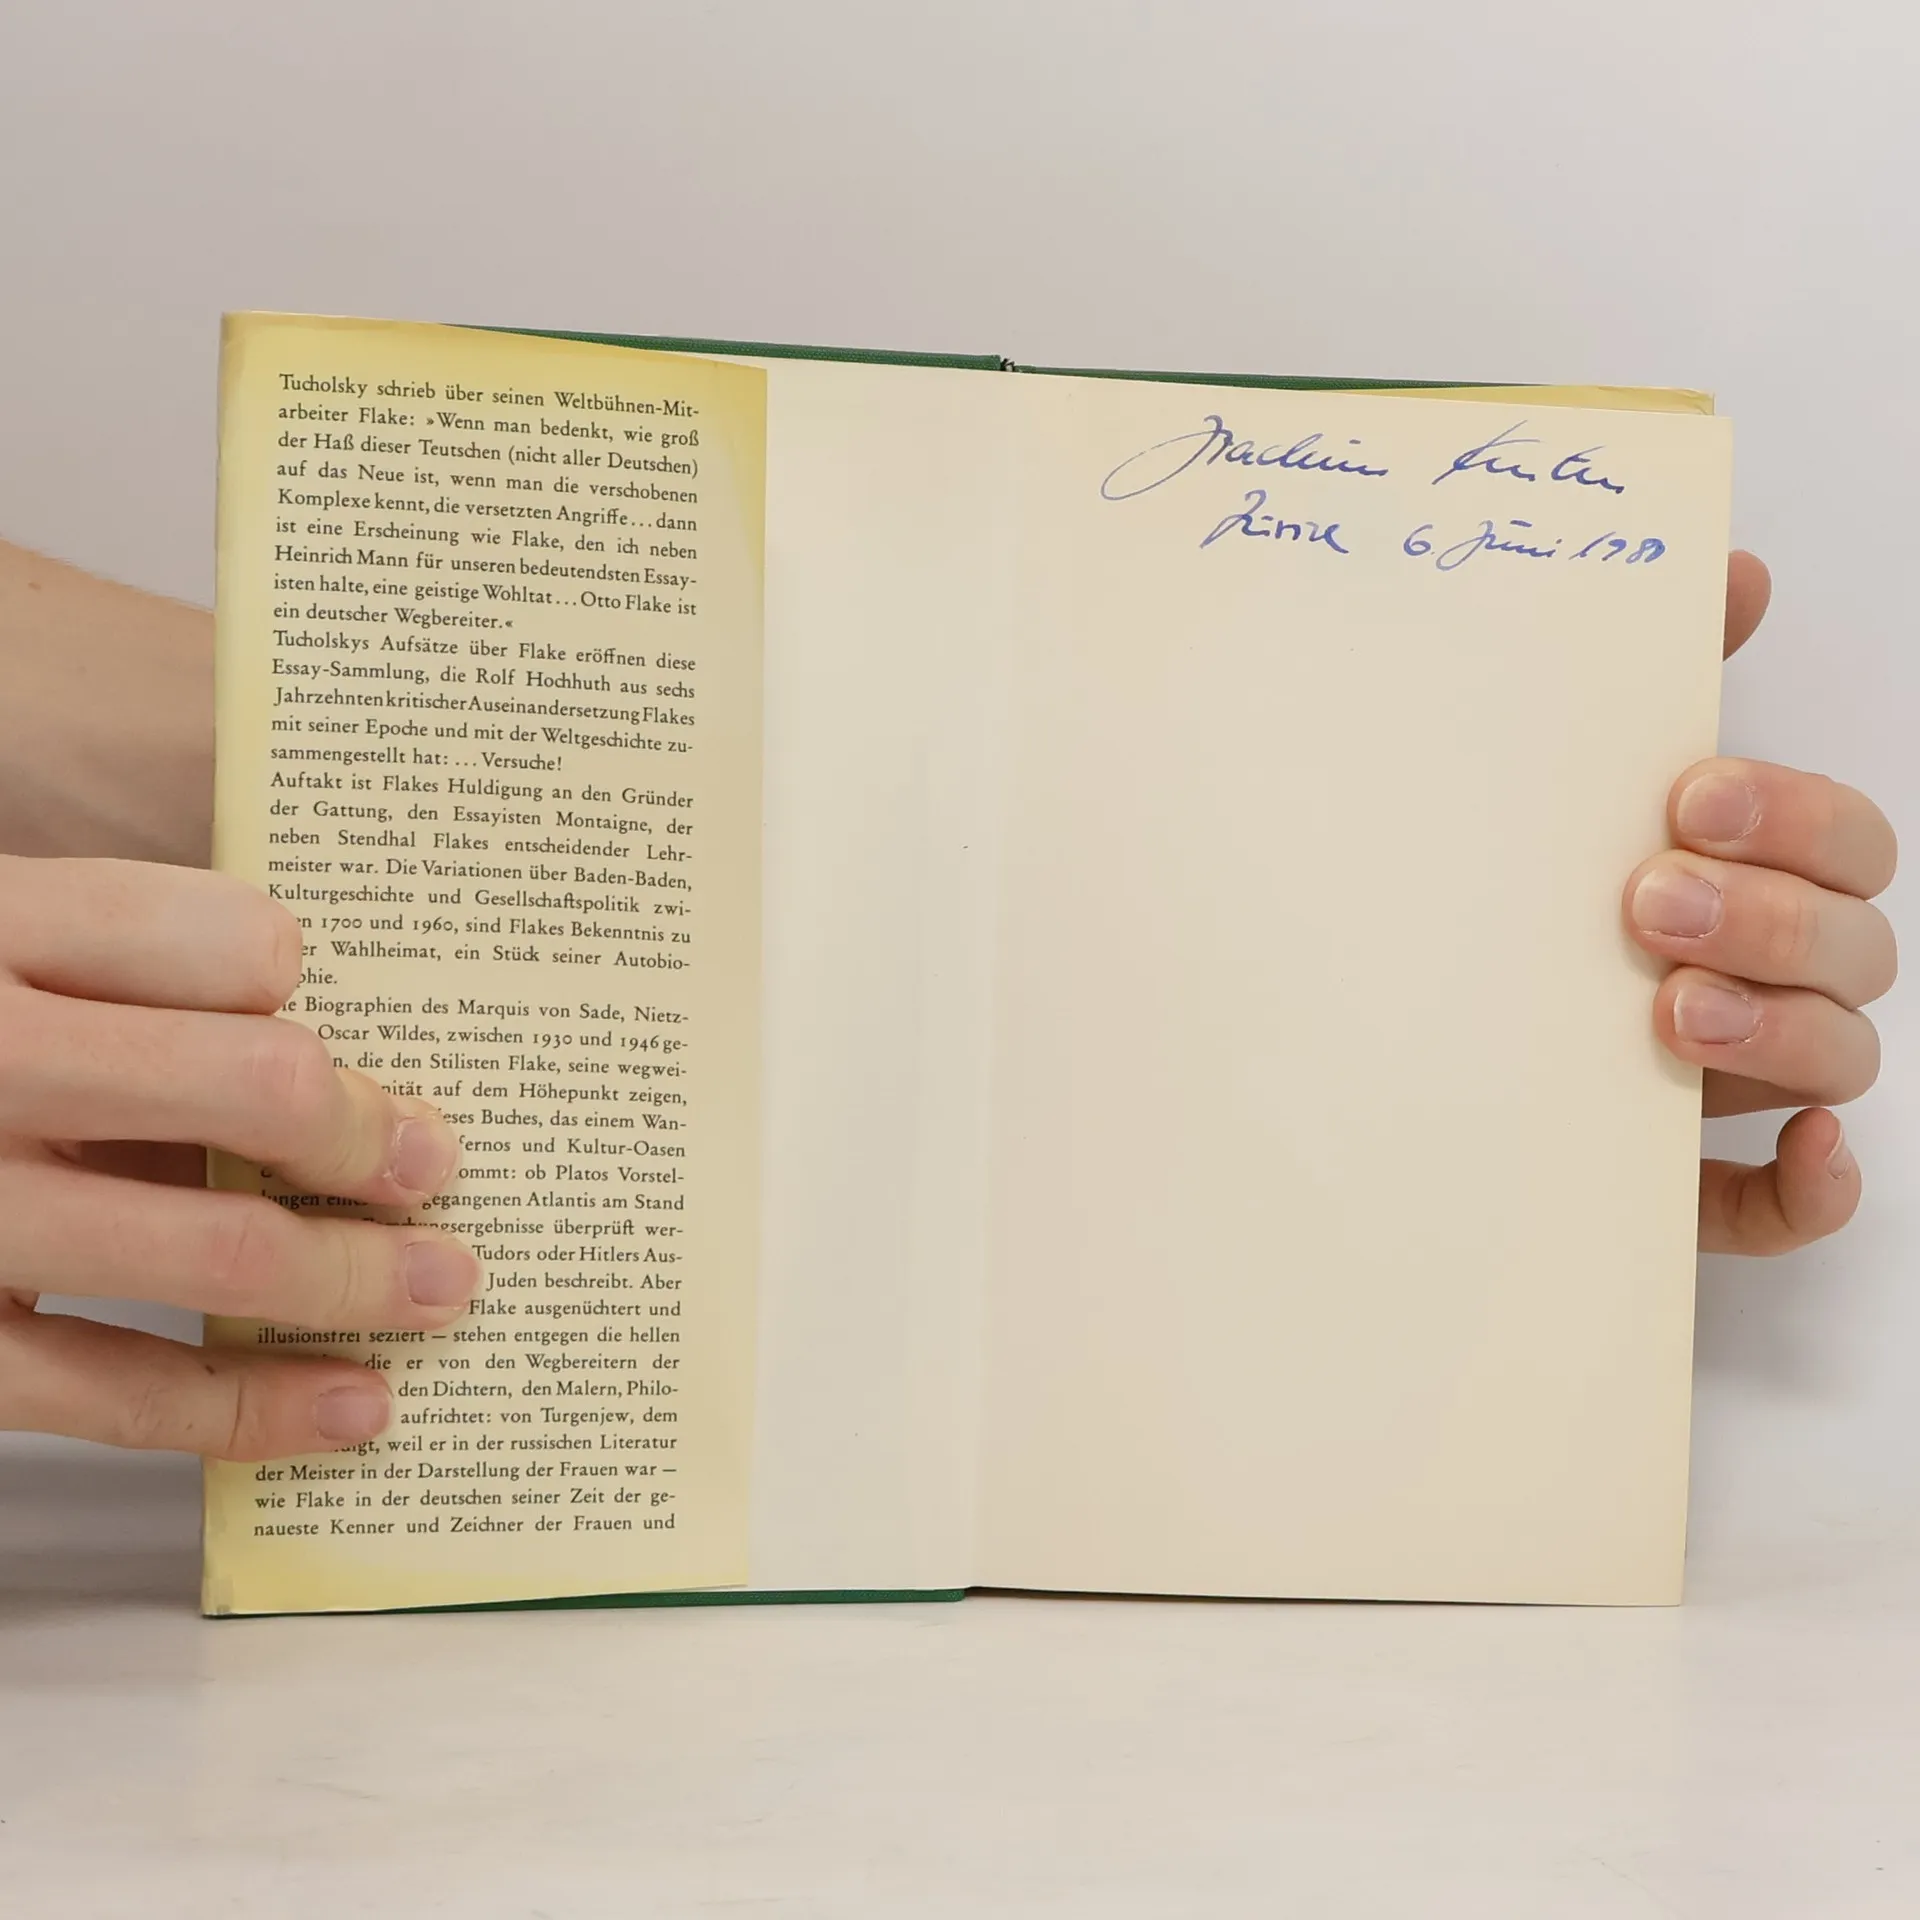 Tucholsky schrieb über seinen Weltbühnen-Mit-
arbeiter Flake: »Wenn man bedenkt, wie groß
der Haß dieser Teutschen (nicht aller Deutschen)
auf das Neue ist, wenn man die verschobenen
Komplexe kennt, die versetzten Angriffe... dann
ist eine Erscheinung wie Flake, den ich neben
Heinrich Mann für unseren bedeutendsten Essay-
isten halte, eine geistige Wohltat... Otto Flake ist
ein deutscher Wegbereiter.«
Tucholskys Aufsätze über Flake eröffnen diese
Essay-Sammlung, die Rolf Hochhuth aus sechs
Jahrzehnten kritischer Auseinandersetzung Flakes
mit seiner Epoche und mit der Weltgeschichte zu-
sammengestellt hat: ... Versuche!
Auftakt ist Flakes Huldigung an den Gründer
der Gattung, den Essayisten Montaigne, der
neben Stendhal Flakes entscheidender Lehr-
meister war. Die Variationen über Baden-Baden,
Kulturgeschichte und Gesellschaftspolitik zwi-
1700 und 1960, sind Flakes Bekenntnis zu
Wahlheimat, ein Stück seiner Autobio-
phie.
Biographien des Marquis von Sade, Nietz-
Oscar Wildes, zwischen 1930 und 1946 ge-
die den Stilisten Flake, seine wegwei-
auf dem Höhepunkt zeigen,
Buches, das einem Wan-
und Kultur-Oasen
ob Platos Vorstel-
lungen gegangenen Atlantis am Stand
überprüft wer-
Tudors oder Hitlers Aus-
Juden beschreibt. Aber
Flake ausgenüchtert und
illusionsfrei seziert — stehen entgegen die hellen
die er von den Wegbereitern der
den Dichtern, den Malern, Philo-
aufrichtet: von Turgenjew, dem
weil er in der russischen Literatur
der Meister in der Darstellung der Frauen war —
wie Flake in der deutschen seiner Zeit der ge-
naueste Kenner und Zeichner der Frauen und
Joachim Kersten
6. Juni 1980